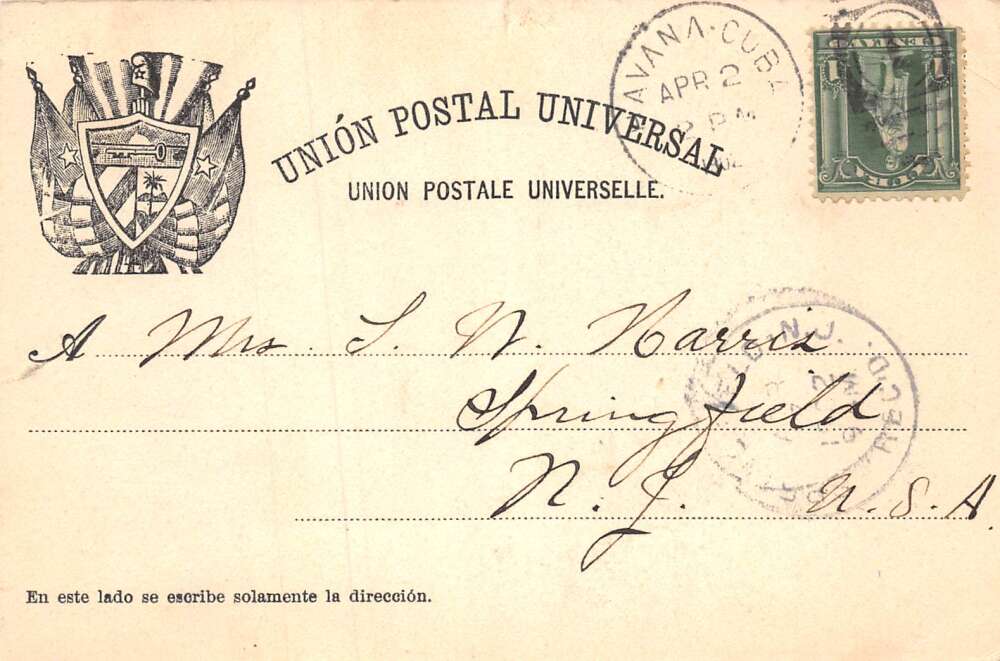 HAVANA · CUBA
APR 2
PM
1 1
UNIÓN POSTAL UNIVERSAL
UNION POSTALE UNIVERSELLE.
A Mrs S. W. Harris
Springfield
N. J. U. S. A.
N. J. REC'D.
En este lado se escribe solamente la dirección.